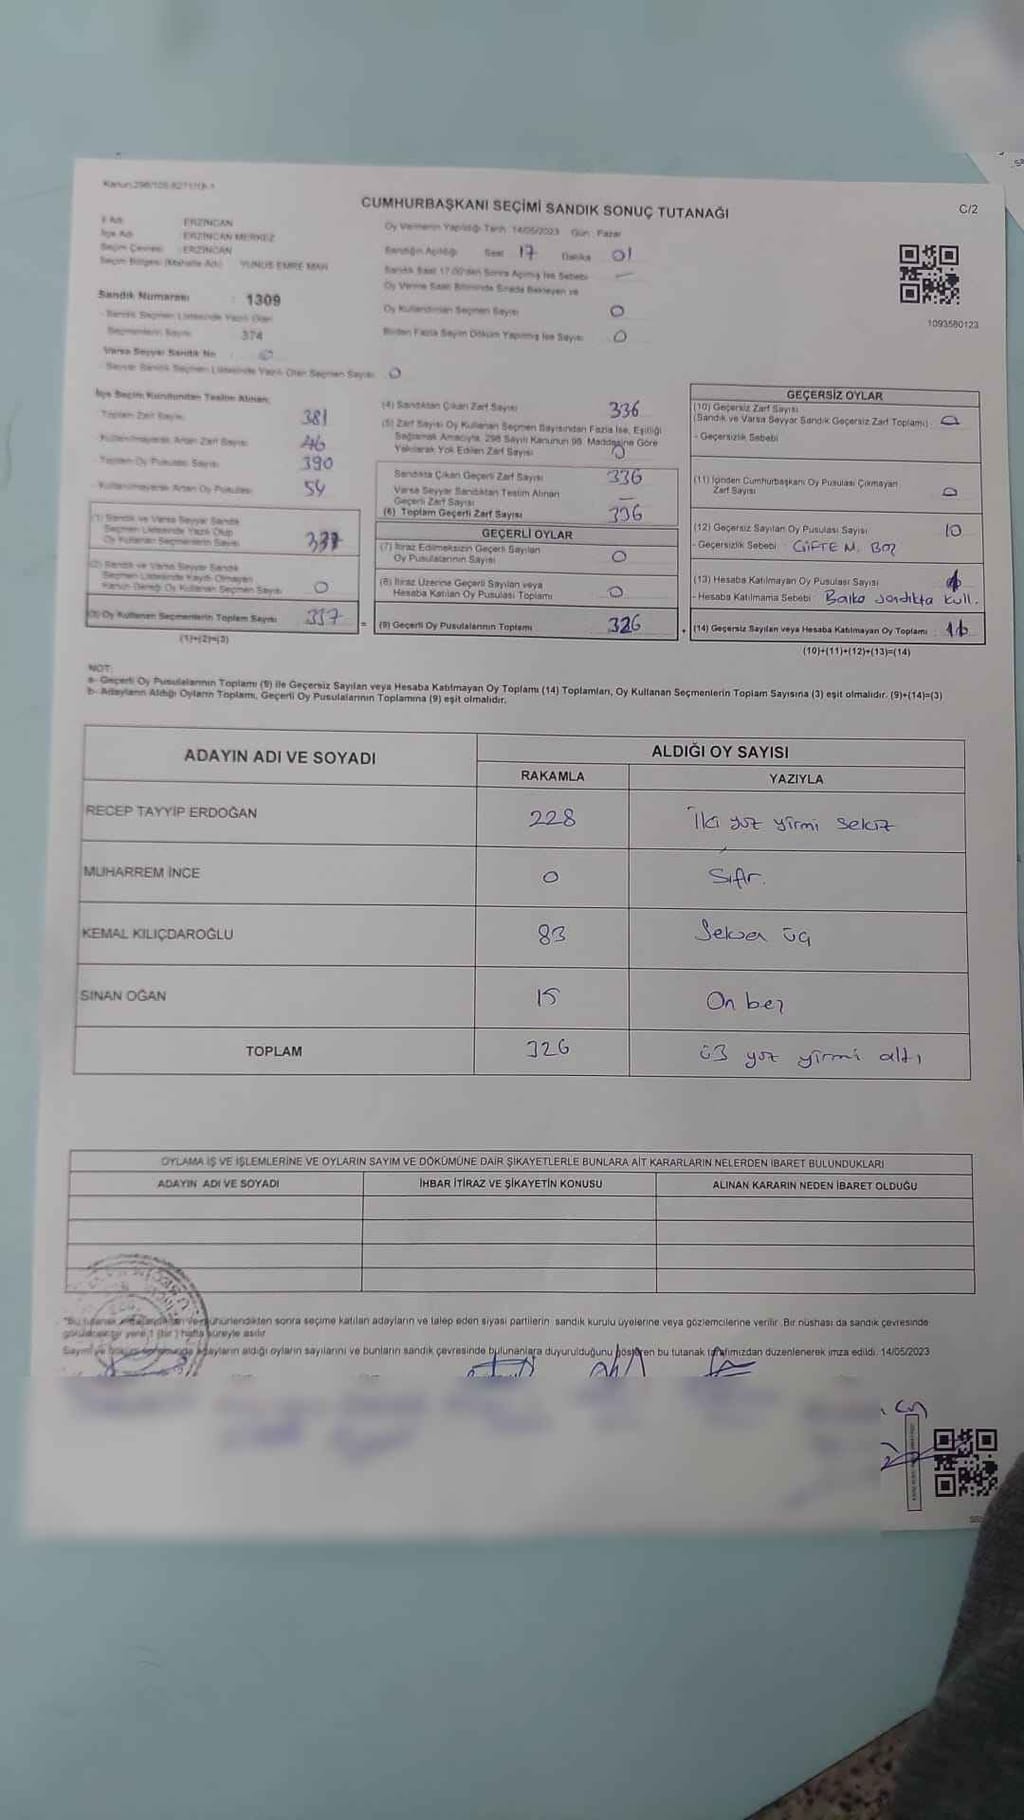 CUMHURBAŞKANI SEÇİMİ SANDIK SONUÇ TUTANAĞI
C/2
İl Adı ERZİNCAN
İlçe Adı ERZİNCAN MERKEZ
Seçim Çevresi ERZİNCAN
Seçim Bölgesi (Mahalle Adı) YUNUS EMRE MAH
Sandık Numarası : 1309
- Sandık Seçmen Listesinde Yazılı Olan
Seçmenlerin Sayısı 374
Varsa Seyyar Sandık No : 0
- Seyyar Sandık Seçmen Listesinde Yazılı Olan Seçmen Sayısı 0
Oy Vermenin Yapıldığı Tarih 14/05/2023 Gün: Pazar
Sandığın Açıldığı Saat 17 Dakika 01
Sandık Saat 17.00'dan Sonra Açılmış İse Sebebi —
Oy Verme Saati Bitiminde Sırada Bekleyen ve
Oy Kullandırılan Seçmen Sayısı 0
Birden Fazla Sayım Döküm Yapılmış İse Sayısı 0
1093580123
İlçe Seçim Kurulundan Teslim Alınan;
Toplam Zarf Sayısı 381
Kullanılmayarak Artan Zarf Sayısı 46
Toplam Oy Pusulası Sayısı 390
Kullanılmayarak Artan Oy Pusulası 54
(1) Sandık ve Varsa Seyyar Sandık
Seçmen Listesinde Yazılı Olup
Oy Kullanan Seçmenlerin Sayısı 337
(2) Sandık ve Varsa Seyyar Sandık
Seçmen Listesinde Kayıtlı Olmayan
Kanun Gereği Oy Kullanan Seçmen Sayısı 0
(3) Oy Kullanan Seçmenlerin Toplam Sayısı 337
(1)+(2)=(3)
(4) Sandıktan Çıkan Zarf Sayısı 336
(5) Zarf Sayısı Oy Kullanan Seçmen Sayısından Fazla İse, Eşitliği
Sağlamak Amacıyla, 298 Sayılı Kanunun 98. Maddesine Göre
Yakılarak Yok Edilen Zarf Sayısı 0
Sandıkta Çıkan Geçerli Zarf Sayısı 336
Varsa Seyyar Sandıktan Teslim Alınan
Geçerli Zarf Sayısı —
(6) Toplam Geçerli Zarf Sayısı 336
GEÇERLİ OYLAR
(7) İtiraz Edilmeksizin Geçerli Sayılan
Oy Pusulalarının Sayısı 0
(8) İtiraz Üzerine Geçerli Sayılan veya
Hesaba Katılan Oy Pusulası Toplamı 0
= (9) Geçerli Oy Pusulalarının Toplamı 326
GEÇERSİZ OYLAR
(10) Geçersiz Zarf Sayısı
(Sandık ve Varsa Seyyar Sandık Geçersiz Zarf Toplamı) 0
- Geçersizlik Sebebi
(11) İçinden Cumhurbaşkanı Oy Pusulası Çıkmayan
Zarf Sayısı 0
(12) Geçersiz Sayılan Oy Pusulası Sayısı 10
- Geçersizlik Sebebi ÇİFTE M.
(13) Hesaba Katılmayan Oy Pusulası Sayısı
- Hesaba Katılmama Sebebi sandıkta kull.
(14) Geçersiz Sayılan veya Hesaba Katılmayan Oy Toplamı
(10)+(11)+(12)+(13)=(14)
NOT:
a- Geçerli Oy Pusulalarının Toplamı (9) ile Geçersiz Sayılan veya Hesaba Katılmayan Oy Toplamı (14) Toplamları, Oy Kullanan Seçmenlerin Toplam Sayısına (3) eşit olmalıdır. (9)+(14)=(3)
b- Adayların Aldığı Oyların Toplamı, Geçerli Oy Pusulalarının Toplamına (9) eşit olmalıdır.
ADAYIN ADI VE SOYADI
ALDIĞI OY SAYISI
RAKAMLA YAZIYLA
RECEP TAYYİP ERDOĞAN 228 İki yüz yirmi sekiz
MUHARREM İNCE 0 Sıfır.
KEMAL KILIÇDAROĞLU 83 Seksen üç
SİNAN OĞAN 15 On beş
TOPLAM 326 ü3 yüz yirmi altı
OYLAMA İŞ VE İŞLEMLERİNE VE OYLARIN SAYIM VE DÖKÜMÜNE DAİR ŞİKAYETLERLE BUNLARA AİT KARARLARIN NELERDEN İBARET BULUNDUKLARI
ADAYIN ADI VE SOYADI İHBAR İTİRAZ VE ŞİKAYETİN KONUSU ALINAN KARARIN NEDEN İBARET OLDUĞU
"Bu tutanak ve mühürlendikten sonra seçime katılan adayların ve talep eden siyasi partilerin sandık kurulu üyelerine veya gözlemcilerine verilir. Bir nüshası da sandık çevresinde
yere 1 (bir) hafta süreyle asılır
Sayım ve döküm sonunda adayların aldığı oyların sayılarını ve bunların sandık çevresinde bulunanlara duyurulduğunu gösteren bu tutanak tarafımızdan düzenlenerek imza edildi. 14/05/2023